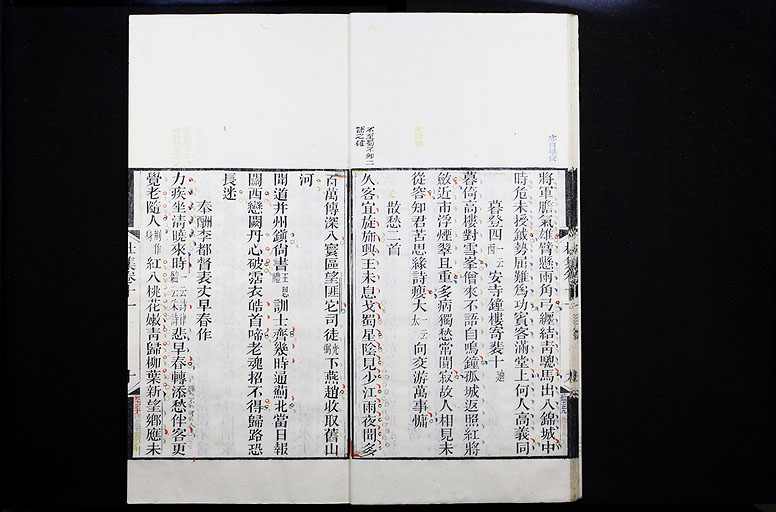 將軍膽氣雄臂懸兩角弓纏結青驄馬出入錦城中
時危未授鉞勢屈難為功賓客滿堂上何人高義同
暮登四一云西安寺鐘樓寄裴十迪
暮倚高樓對雪峯僧來不語自鳴鐘孤城返照紅將
斂近市浮煙翠且重多病獨愁常闃寂故人相見未
從容知君苦思緣詩瘦大一云太向交游萬事慵
散愁二首
久客宜旋旆興王未息戈蜀星陰見少江雨夜聞多
百萬傳深入寰區望匪它司徒光弼下燕趙收取舊山
河
聞道并州鎮尚書王思禮訓士齊幾時通薊北當日報
關西戀闕丹心破霑衣皓首啼老魂招不得歸路恐
長迷
奉酬李都督表丈早春作
力疾坐清曉來時悲早春轉添愁伴客更
覺老隨人紅入桃花嫩青歸柳葉新望鄉應未
杜集卷十一